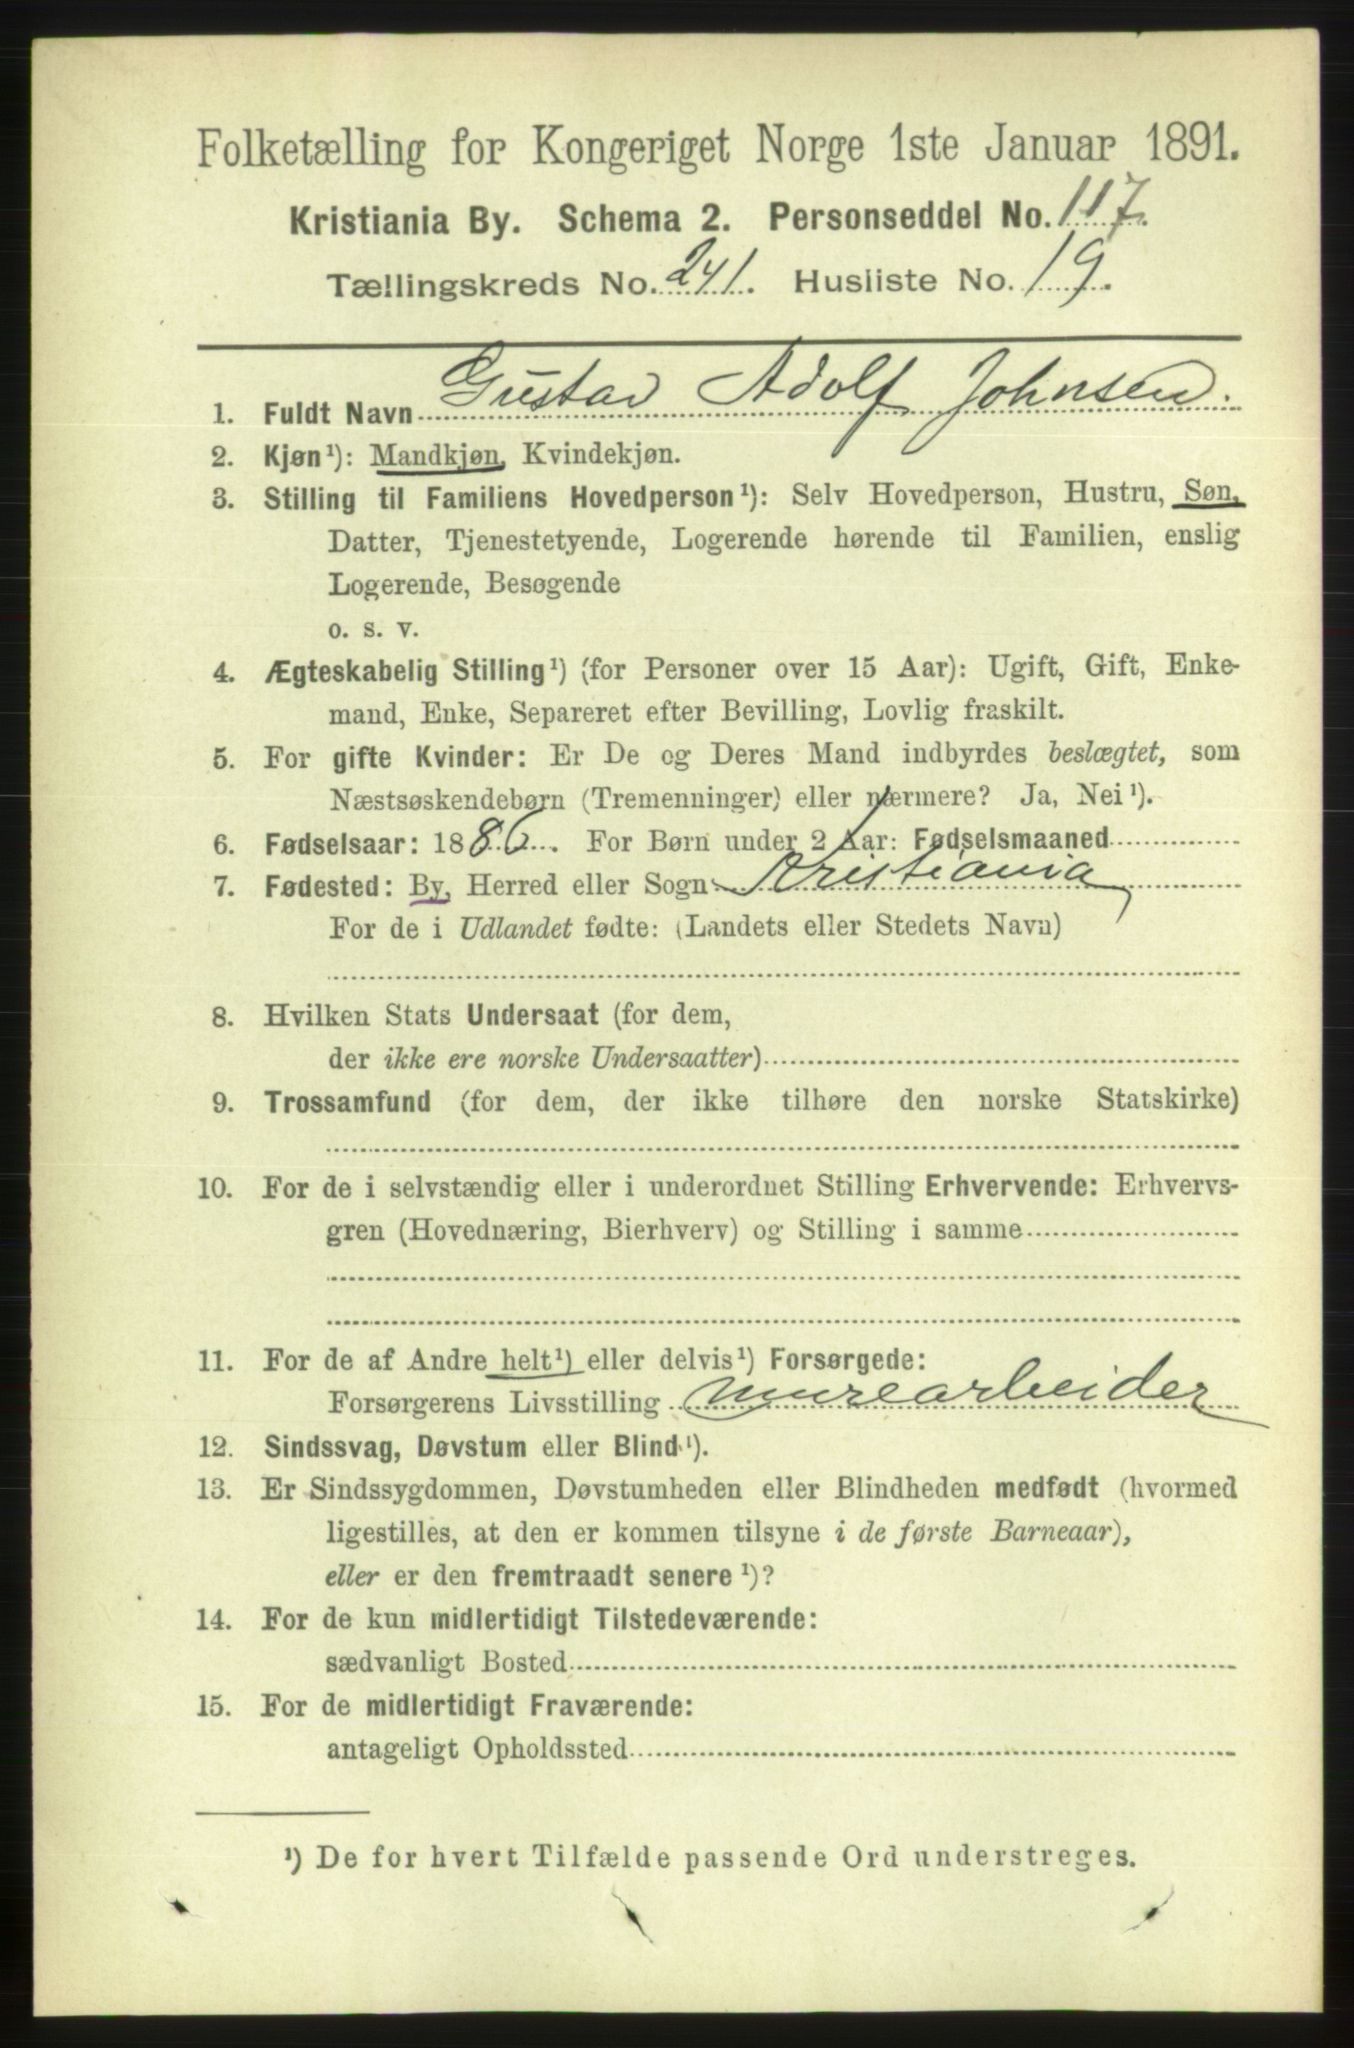 Folketælling for Kongeriget Norge 1ste Januar 1891.
Kristiania By. Schema 2. Personseddel No. 117.
Tællingskreds No. 241. Husliste No. 19.
1. Fuldt Navn Gustav Adolf Johnsen.
2. Kjøn¹): Mandkjøn, Kvindekjøn.
3. Stilling til Familiens Hovedperson¹): Selv Hovedperson, Hustru, Søn,
Datter, Tjenestetyende, Logerende hørende til Familien, enslig
Logerende, Besøgende
o. s. v.
4. Ægteskabelig Stilling¹) (for Personer over 15 Aar): Ugift, Gift, Enke-
mand, Enke, Separeret efter Bevilling, Lovlig fraskilt.
5. For gifte Kvinder: Er De og Deres Mand indbyrdes beslægtet, som
Næstsøskendebørn (Tremenninger) eller nærmere? Ja, Nei¹).
6. Fødselsaar: 1886. For Børn under 2 Aar: Fødselsmaaned
7. Fødested: By, Herred eller Sogn Kristiania
For de i Udlandet fødte: (Landets eller Stedets Navn)
8. Hvilken Stats Undersaat (for dem,
der ikke ere norske Undersaatter)
9. Trossamfund (for dem, der ikke tilhøre den norske Statskirke)
10. For de i selvstændig eller i underordnet Stilling Erhvervende: Erhvervs-
gren (Hovednæring, Bierhverv) og Stilling i samme
11. For de af Andre helt¹) eller delvis¹) Forsørgede:
Forsørgerens Livsstilling Murearbeider
12. Sindssvag, Døvstum eller Blind¹).
13. Er Sindssygdommen, Døvstumheden eller Blindheden medfødt (hvormed
ligestilles, at den er kommen tilsyne i de første Barneaar),
eller er den fremtraadt senere¹)?
14. For de kun midlertidigt Tilstedeværende:
sædvanligt Bosted
15. For de midlertidigt Fraværende:
antageligt Opholdssted
¹) De for hvert Tilfælde passende Ord understreges.